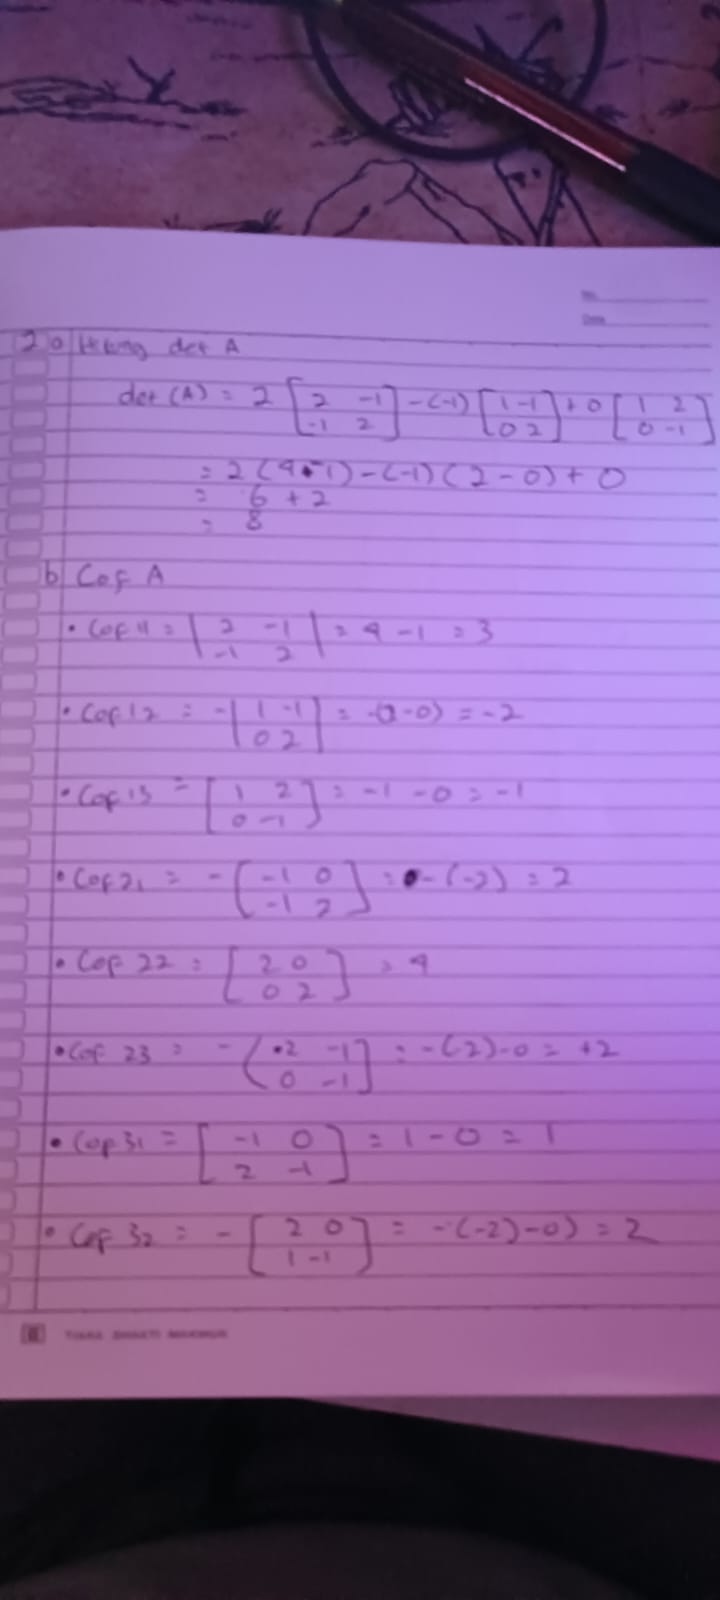 No.
Date
2 a Hitung det A
det (A) = 2 [2 -1 -1 2] - (-1) [1 -1 0 2] + 0 [1 2 0 -1]
= 2 (4 - 1) - (-1) (2 - 0) + 0
= 6 + 2
= 8
b Cof A
• Cof 11 = |2 -1 -1 2| = 4 - 1 = 3
• Cof 12 = -|1 -1 0 2| = -(2-0) = -2
• Cof 13 = [1 2 0 -1] = -1 - 0 = -1
• Cof 21 = -[-1 0 -1 2] = -(-2) = 2
• Cof 22 = [2 0 0 2] = 4
• Cof 23 = -[2 -1 0 -1] = -(-2)-0 = +2
• Cof 31 = [-1 0 2 -1] = 1 - 0 = 1
• Cof 32 = -[2 0 1 -1] = -(-2)-0) = 2
TIARA SHAKTI MAKMUR